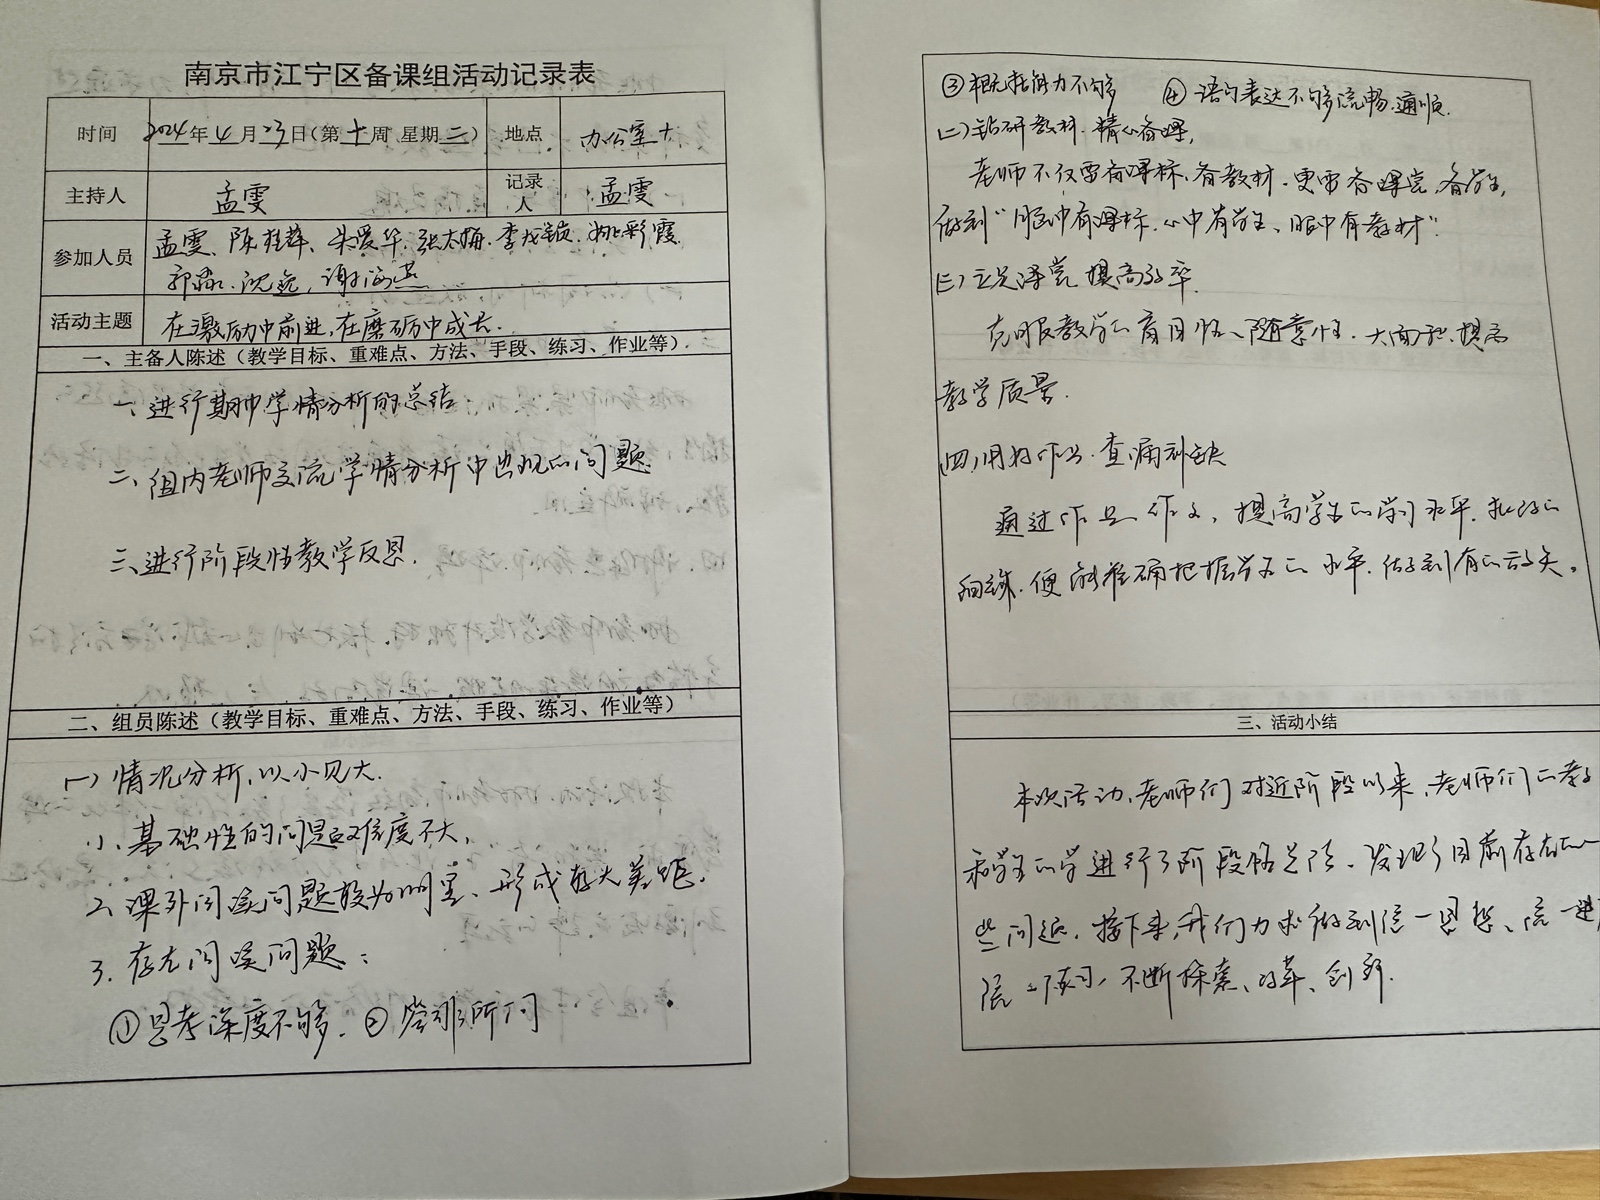 南京市江宁区备课组活动记录表
时间 2024年4月23日(第十周 星期二) 地点 办公室十
主持人 孟雯 记录人 孟雯
参加人员 孟雯、陈桂萍、朱爱华、张太梅、李成银、姚彩霞
郭淼、沈、谢海燕
活动主题 在激励中前进,在磨砺中成长.
一、主备人陈述(教学目标、重难点、方法、手段、练习、作业等).
一、进行期中学情分析的总结
二、组内老师交流学情分析中出现的问题
三、进行阶段性教学反思.
二、组员陈述(教学目标、重难点、方法、手段、练习、作业等)
(一)情况分析,以小见大.
1、基础性的问题难度不大,
2、课外阅读问题较为明显、形成较大差距.
3. 存在阅读问题:
①思考深度不够. ②答非所问
③概括能力不够 ④语句表达不够流畅、通顺.
(二)钻研教材、精心备课,
老师不仅需备课标、备教材、更需备课堂、备学生,
做到“脑中有课标、心中有学生、眼中有教材”.
(三)立足课堂 提高效率
克服教学的盲目性、随意性. 大面积提高
教学质量.
(四)用好作业. 查漏补缺
通过作业、作文,提高学生的学习水平. 批改的
细致. 便能准确把握学生的水平. 做到有的放矢.
三、活动小结
本次活动,老师们对近阶段以来,老师们的教
和学生的学进行了阶段性总结、发现了目前存在的一
些问题. 接下来,我们力求做到统一思想、统一进
统一练习,不断探索、改革、创新.